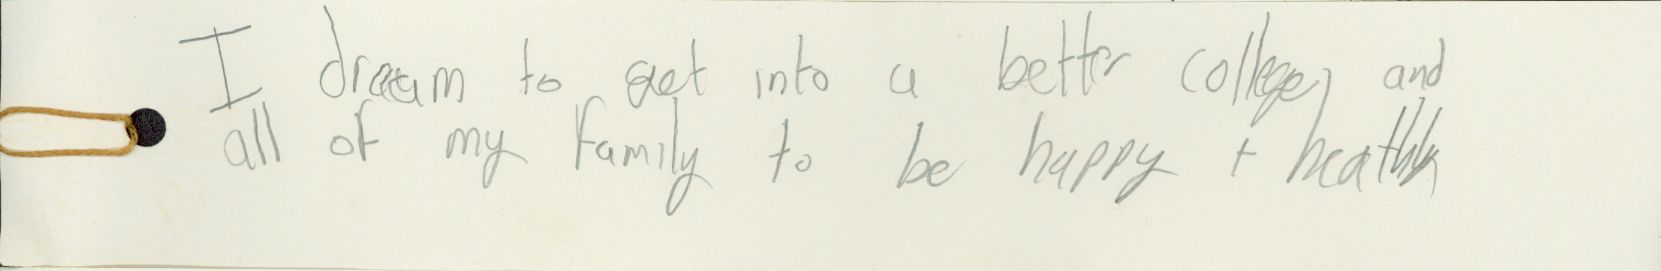 I dream to get into a better college, and
all of my family to be happy + heathly